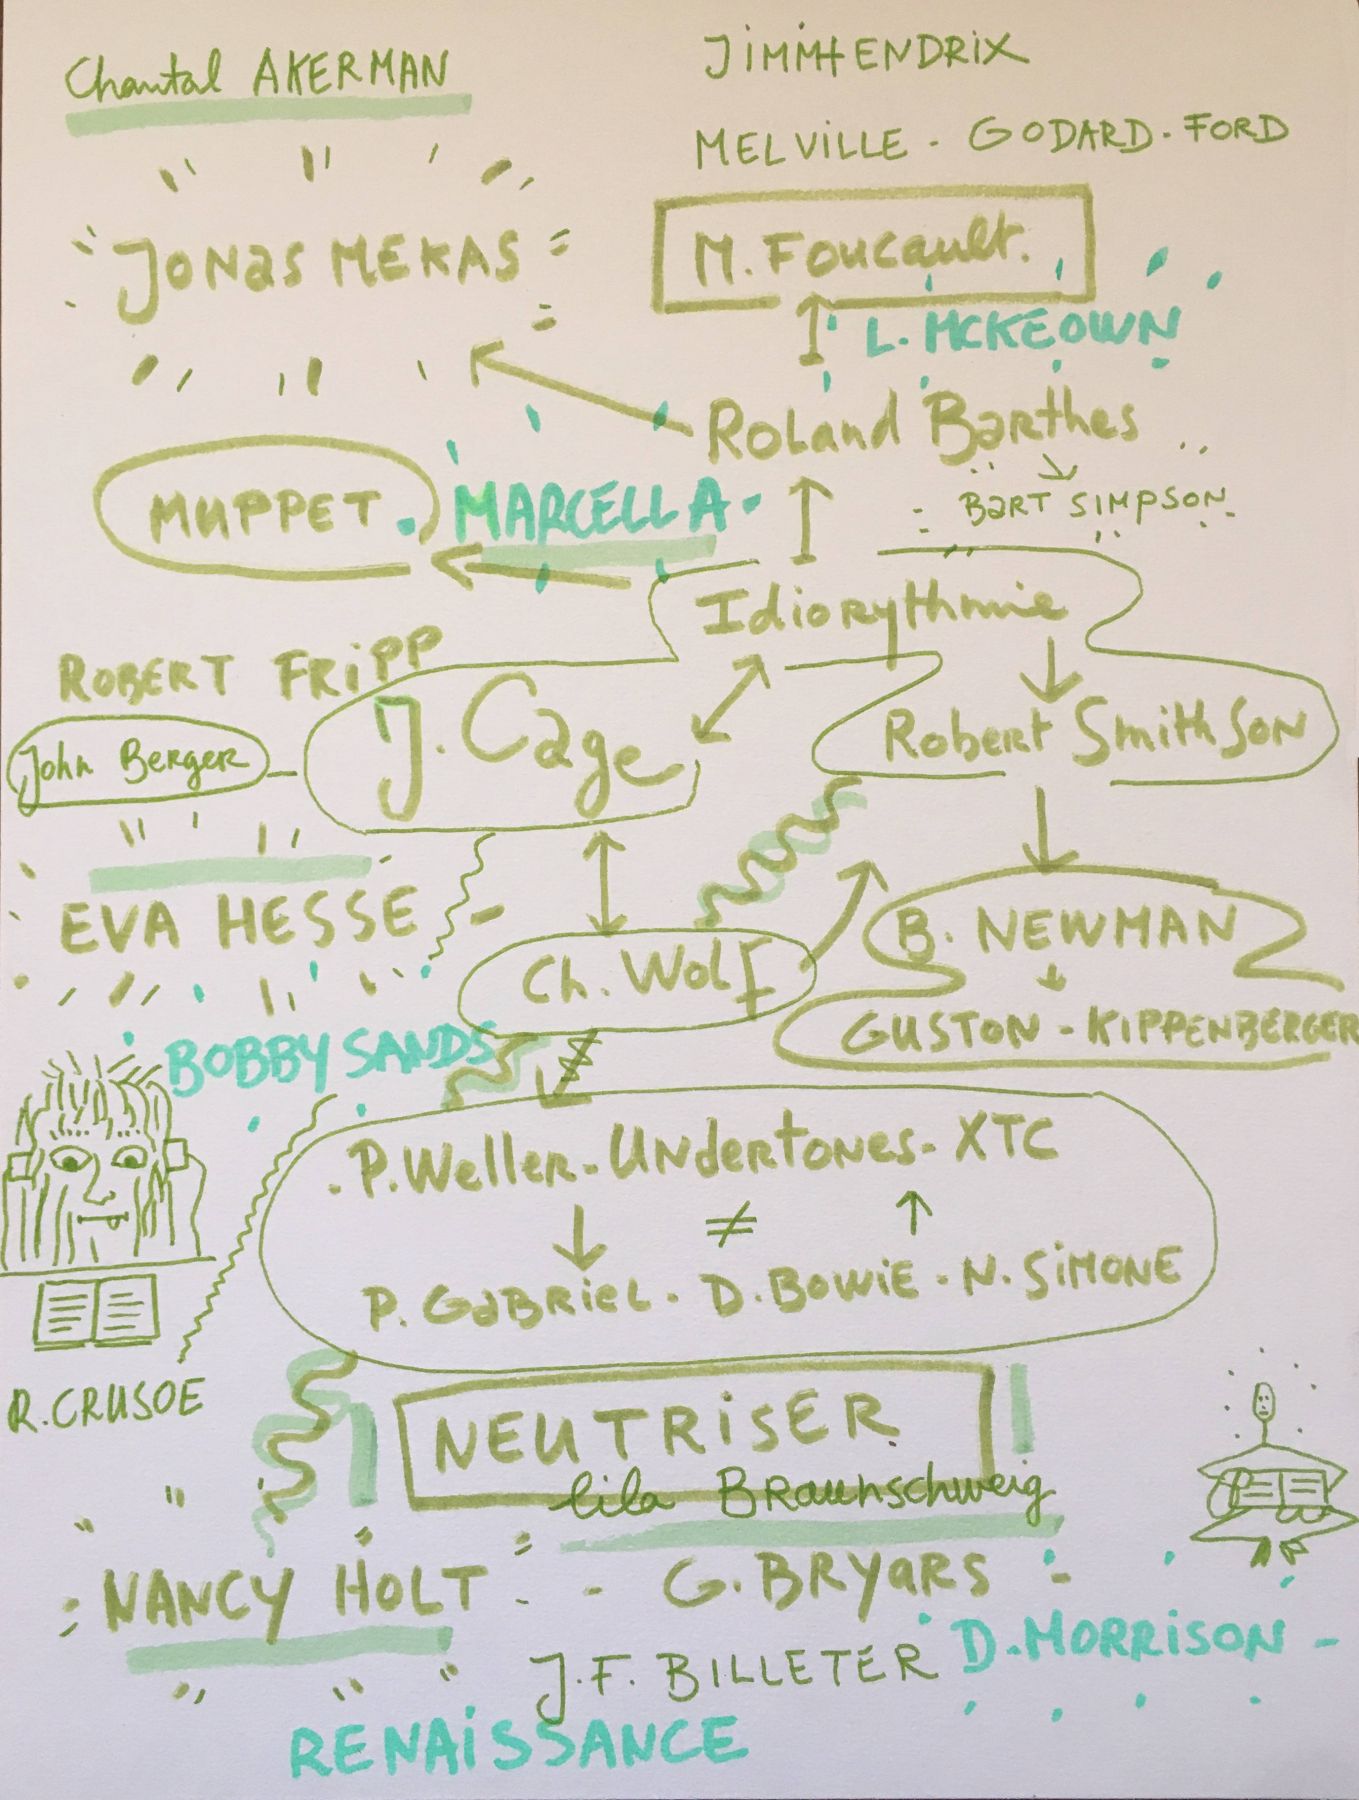 Chantal AKERMAN
JIMMHENDRIX
MELVILLE - GODARD - FORD
JONAS MEKAS
M. Foucault.
L. MCKEOWN
Roland Barthes
BART SIMPSON
MUPPET.
MARCELLA
Idiorythmie
ROBERT FRIPP
J. Cage
Robert Smithson
John Berger
EVA HESSE
Ch. Wolf
B. NEWMAN
GUSTON - KIPPENBERGER
BOBBY SANDS
P. Weller - Undertones - XTC
≠
P. GABRIEL - D. BOWIE - N. SIMONE
R. CRUSOE
NEUTRISER
lila Braunschweig
NANCY HOLT - G. BRYARS
D. MORRISON
J.F. BILLETER
RENAISSANCE